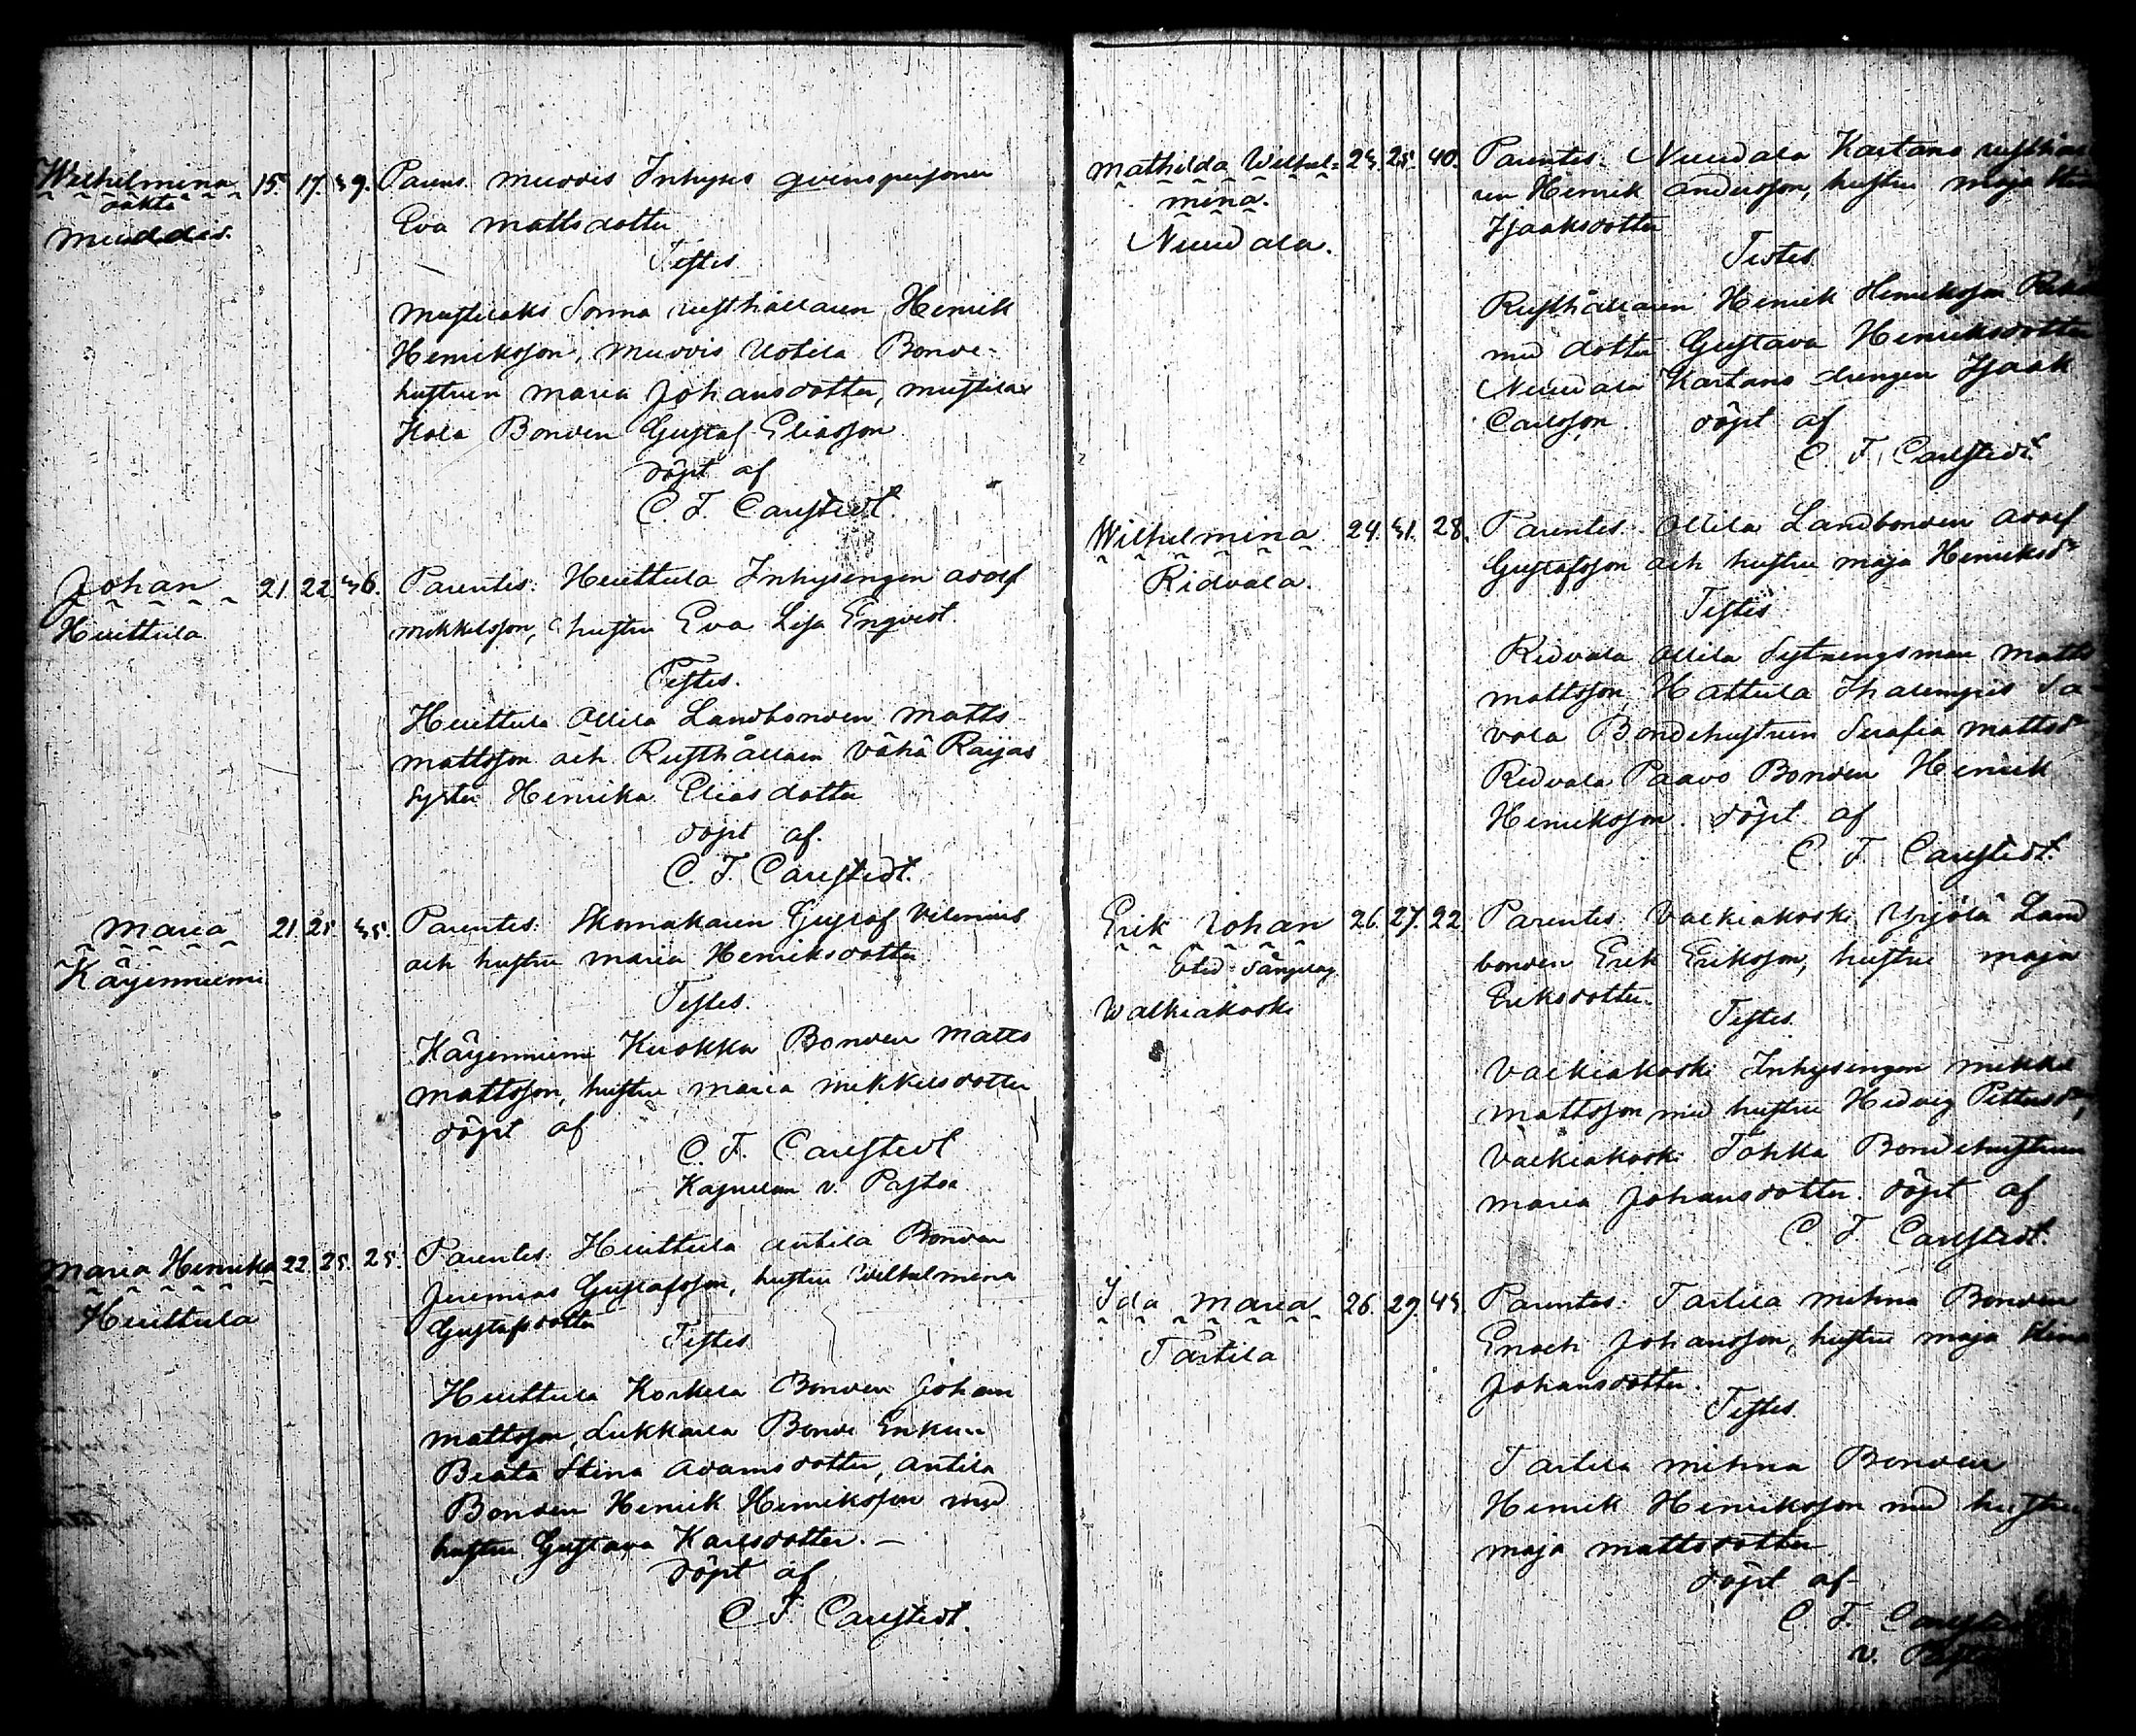 Wilhelmina 15. 17. 39. Parens. Muddis Inhyses qvinspersonen
oäkta
Muddis. Eva Mattsdotter
Testes
Mustilaks Sonna rusthållaren Henrik
Henriksson, Muddis Uotila Bonde-
hustrun Maria Johansdotter, Mustilax
Kola Bonden Gustaf Eliasson
döpt af
C. F. Carlstedt.
Johan 21. 22. 36. Parentes: Huittula Inhysingen Adolf
Huittula Mikkelsson, hustru Eva Lisa Engvist.
Testes.
Huittula Ollila Landbonden Matts
Mattsson och Rusthållaren Vähä Raijas
Syster Henrika Eliasdotter
döpt af.
C. F. Carlstedt.
Maria 21. 25. 35. Parentes: Skomakaren Gustaf Velenius
Käyenniemi och hustru Maria Henriksdotter
Testes.
Käyenniemi Kuokka Bonden Matts
Mattsson, hustru Maria Mikkelsdotter
döpt af
C. F. Carlstedt
Kapellan v. Pastor
Maria Henrika 22. 25. 25. Parentes: Huittula Antila Bonden
Huittula Jeremias Gustafsson, hustru Wilhelmina
Gustafsdotter
Testes
Huittula Korkela Bonden Johan
Mattsson, Lukkarla Bonde Enkan
Beata Stina Adamsdotter, Antila
Bonden Henrik Henriksson med
hustru Gustava Karlsdotter. –
döpt af
C. F. Carlstedt.
Mathilda Wilhel- 23. 25. 40. Parentes. Nuudala Kartano rusthålla
mina. ren Henrik Andersson, hustru Maja Stina
Nuudala. Isaaksdotter
Testes
Rusthållaren Henrik Henriksson
med dotter Gustava Henriksdotter
Nuudala Kartano drengen Isaak
Carlsson. döpt af
C. F. Carlstedt.
Wilhelmina 24. 31. 28. Parentes. Ollila Landbonden Adolf
Ridvala. Gustafsson och hustru Maja Henriksdr
Testes
Ridvala Ollila Sytningsman Matts
Mattsson, Hattula Ihalempis Sa-
vola Bondehustrun Serafia Mattsdr
Ridvala Paavo Bonden Henrik
Henriksson. döpt af
C. F. Carlstedt.
Erik Johan 26. 27. 22 Parentes Valkiakoski Yrjölä Land
bonden Erik Eriksson, hustru Maja
Walkiakoski Eriksdotter.
Testes.
Valkiakoski Inhysingen Mikkel
Mattsson med hustru Hedvig Pettersdr,
Valkiakoski Tohka Bondehustrun
Maria Johansdotter. döpt af
C. F. Carlstedt.
Ida Maria 26. 29. 43. Parentes: Tarttila Mihna Bonden
Tarttila Enoch Johansson, hustru Maja Stina
Johansdotter.
Testes.
Tarttila Mihna Bonden
Henrik Henriksson med hustru
Maja Mattsdotter
döpt af
C. F. Carlstedt
v. Pastor